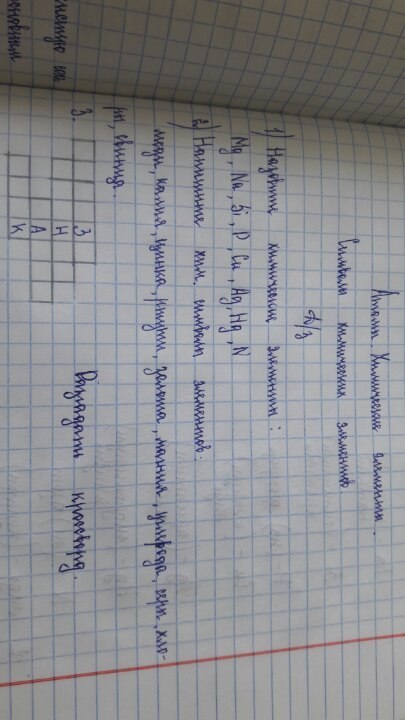 Атомы. Химические элементы.
Символы химических элементов
д/з
1) Назовите химические элементы:
Mg, Na, Si, P, Cu, Ag, Hg, N
2) Напишите хим. символы элементов:
меди, калия, цинка, ртути, золота, магния, углерода, серы, хло-
ры, свинца.
3. З
Н
А
К
Разгадать кроссворд.